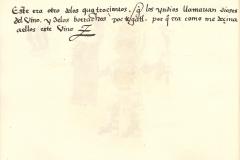 Este era otro delos quatrocientos. q los yndios llamauan dioses
del Vino. y delos borrachos por . por q era como medecina
aellos este Vino